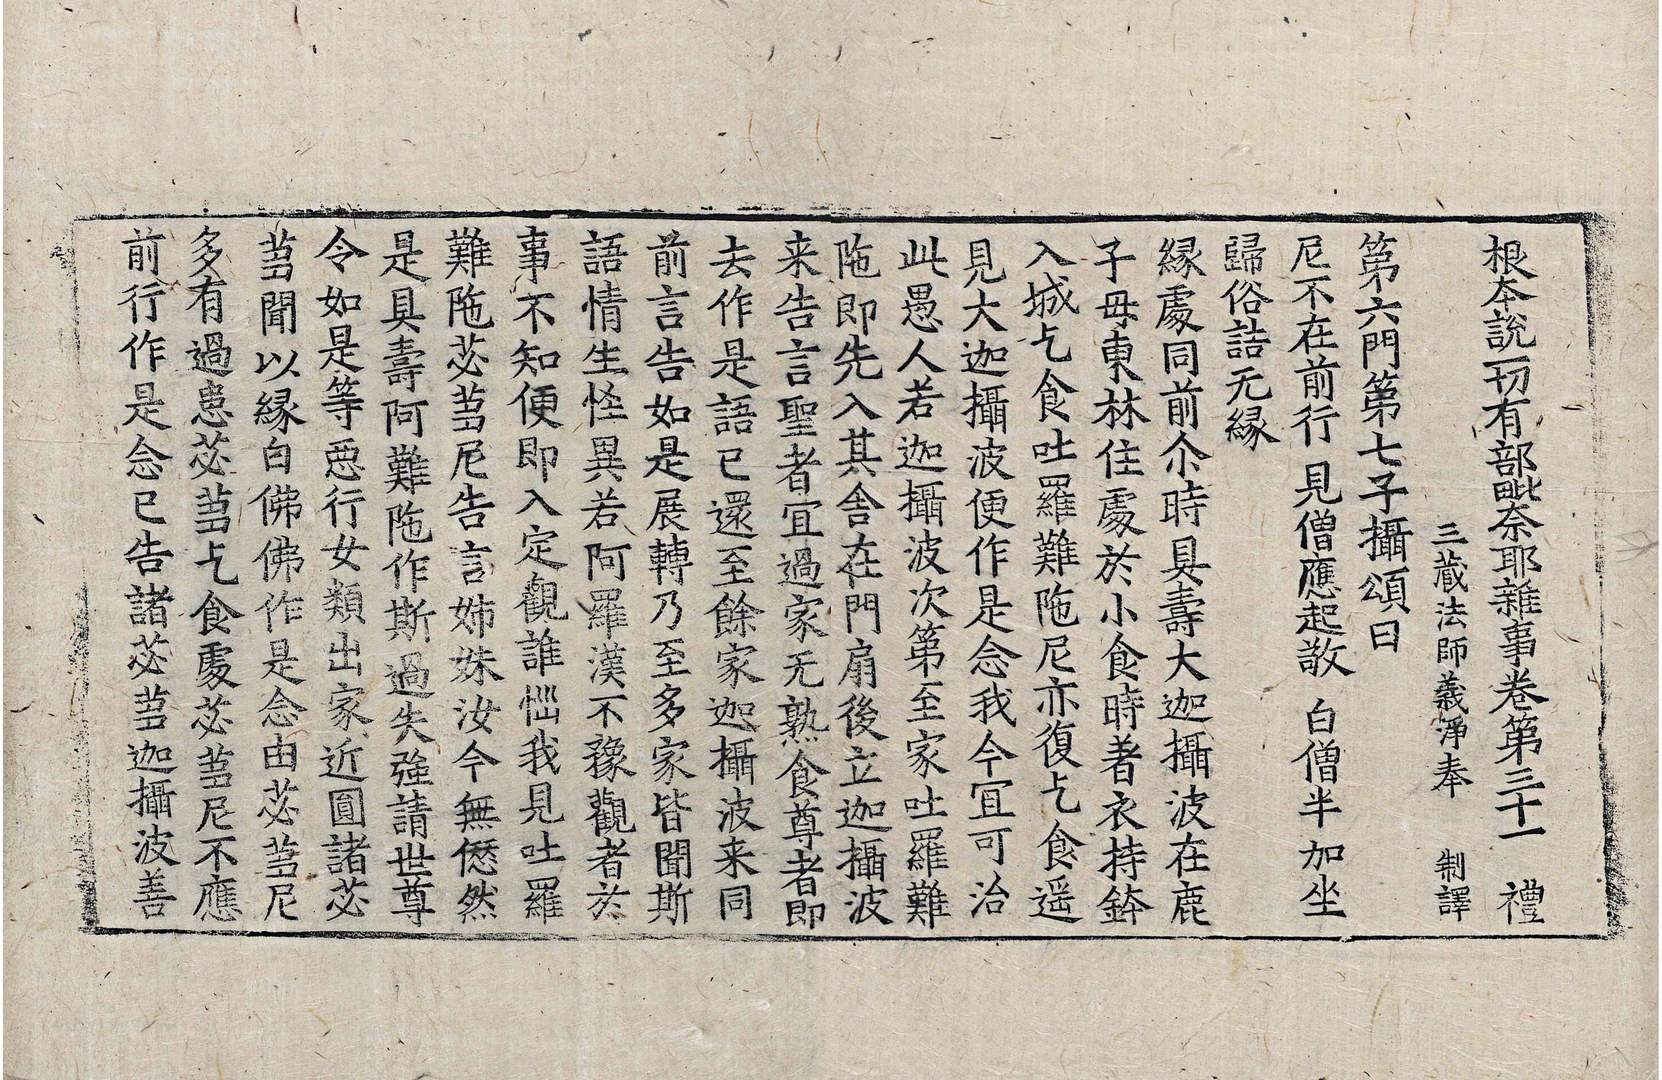 根夲說一切有部毗奈耶雜事卷第三十一 禮
三蔵法師義淨奉 制譯
第六門第七子攝頌曰
尼不在前行 見僧應起敬 白僧半加坐
歸俗詰无縁
縁處同前尒時具壽大迦攝波在鹿
子母東林住處於小食時著衣持鉢
入城乞食吐羅難陁尼亦復乞食遥
見大迦攝波便作是念我今宜可治
此愚人若迦攝波次第至家吐羅難
陁即先入其舍在門扇後立迦攝波
来告言聖者宜過家无熟食尊者即
去作是語已還至餘家迦攝波来同
前言告如是展轉乃至多家皆聞斯
語情生怪異若阿羅漢不豫觀者於
事不知便即入定觀誰惱我見吐羅
難陁苾芻尼告言姊妹汝今無㒹然
是具壽阿難陁作斯過失強請世尊
令如是等惡行女類出家近圓諸苾
芻聞以縁白佛佛作是念由苾芻尼
多有過患苾芻乞食處苾芻尼不應
前行作是念已告諸苾芻迦攝波善